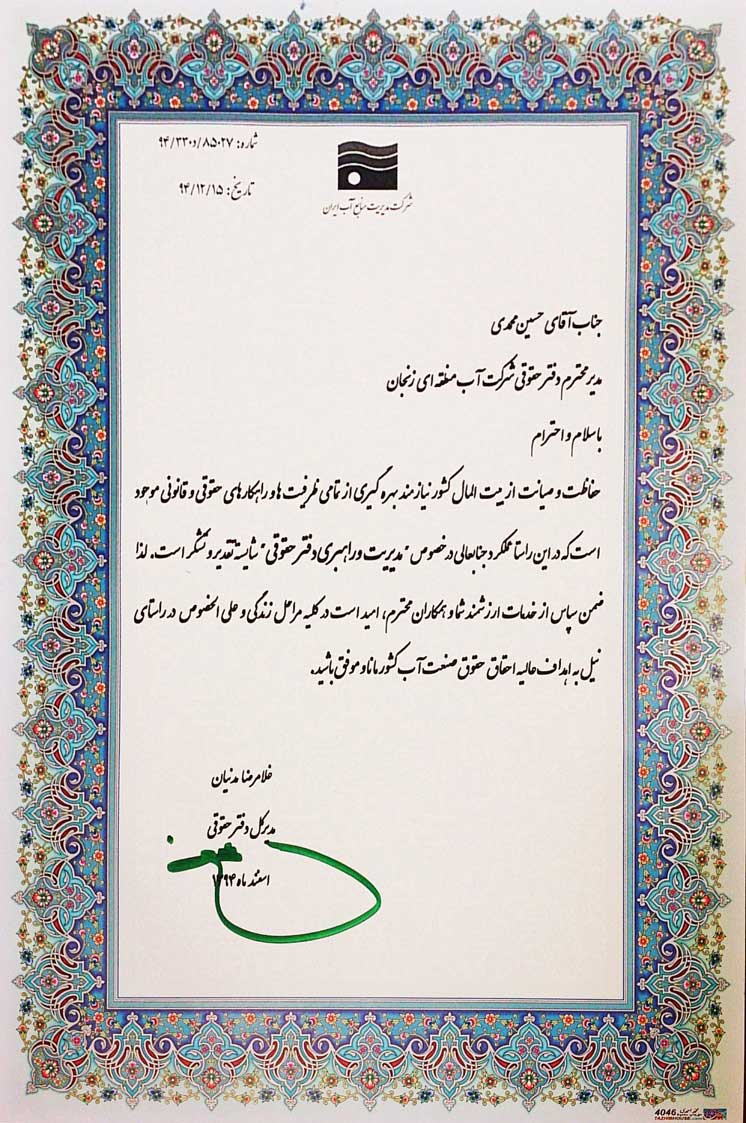 شماره: ۹۴/۳۳۰د/۸۵۰۲۷
تاریخ: ۹۴/۱۲/۱۵
شرکت مدیریت منابع آب ایران
جناب آقای حسین محمدی
مدیر محترم دفتر حقوقی شرکت آب منطقه ای زنجان
با سلام و احترام
حفاظت و صیانت از بیت المال کشور نیازمند بهره گیری از تمامی ظرفیت ها و راهکارهای حقوقی و قانونی موجود
است که در این راستا عملکرد جنابعالی در خصوص "مدیریت و راهبری دفتر حقوقی" شایسته تقدیر و تشکر است. لذا
ضمن سپاس از خدمات ارزشمند شما و همکاران محترم، امید است در کلیه مراحل زندگی و علی الخصوص در راستای
نیل به اهداف عالیه احقاق حقوق صنعت آب کشور مانا و موفق باشید.
غلامرضا مدنیان
مدیرکل دفتر حقوقی
اسفند ماه ۱۳۹۴
4046
TAZHIBHOUSE.com